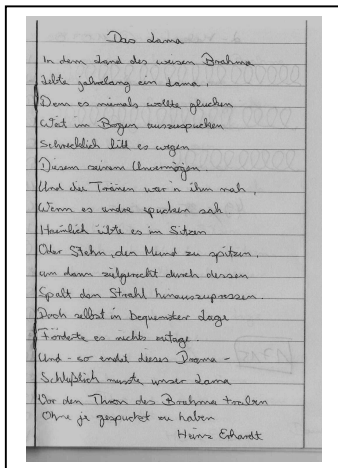 Das Lama
In dem Land des weisen Brahma
Lebte jahrelang ein Lama,
Dem es niemals wollte glucken
Weit im Bogen auszuspucken
Schrecklich litt es wegen
Diesem seinem Unvermögen.
Und die Tränen war'n ihm nah,
Wenn es andre spucken sah
Heimlich übte es im Sitzen
Oder Stehn, den Mund zu spitzen,
um dann zielgerecht durch dessen
Spalt den Strahl hinauszupressen.
Doch selbst in bequemster Lage
Förderte es nichts zutage.
Und - so endet dieses Drama -
Schließlich musste unser Lama
Vor den Thron des Brahma traben
Ohne je gespucket zu haben
Heinz Erhardt